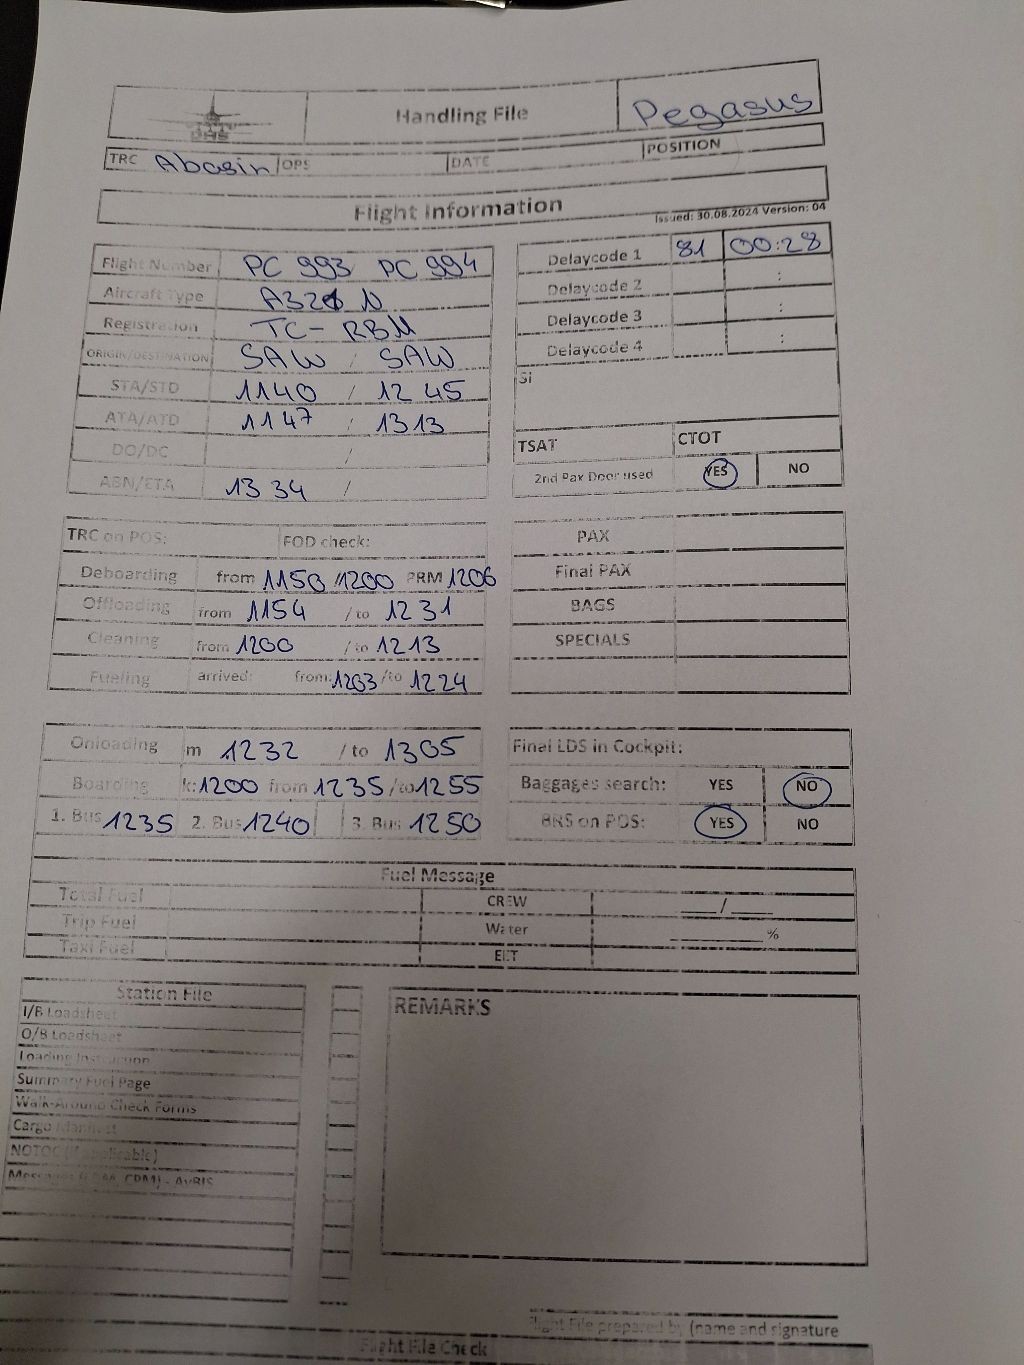 DHS Handling File Pegasus
TRC Abasin OPS DATE POSITION
Flight Information
Issued: 30.08.2024 Version: 04
Flight Number PC 993 PC 994
Aircraft Type A321 N
Registration TC-RBM
ORIGIN/DESTINATION SAW / SAW
STA/STD 1140 / 1245
ATA/ATD 1147 / 1313
DO/DC /
ABN/ETA 1334 /
Delaycode 1 81 00:28
Delaycode 2 :
Delaycode 3 :
Delaycode 4 :
SI
TSAT CTOT
2nd Pax Door used YES NO
TRC on POS: FOD check:
Deboarding from 1150 /1200 PRM 1206
Offloading from 1154 / to 1231
Cleaning from 1200 / to 1213
Fueling arrived: from: 1203 /to 1224
PAX
Final PAX
BAGS
SPECIALS
Onloading m 1232 / to 1305
Boarding k: 1200 from 1235 /to 1255
1. Bus 1235 2. Bus 1240 3. Bus 1250
Final LDS in Cockpit:
Baggages search: YES NO
BRS on POS: YES NO
Fuel Message
Total Fuel CREW ____/____
Trip Fuel Water ________%
Taxi Fuel EET
Station File
I/B Loadsheet
O/B Loadsheet
Loading Instruction
Summary Fuel Page
Walk-Around Check Forms
Cargo Manifest
NOTOC (if applicable)
CPM) - AVBIS
REMARKS
Flight File prepared by (name and signature
Flight File Check